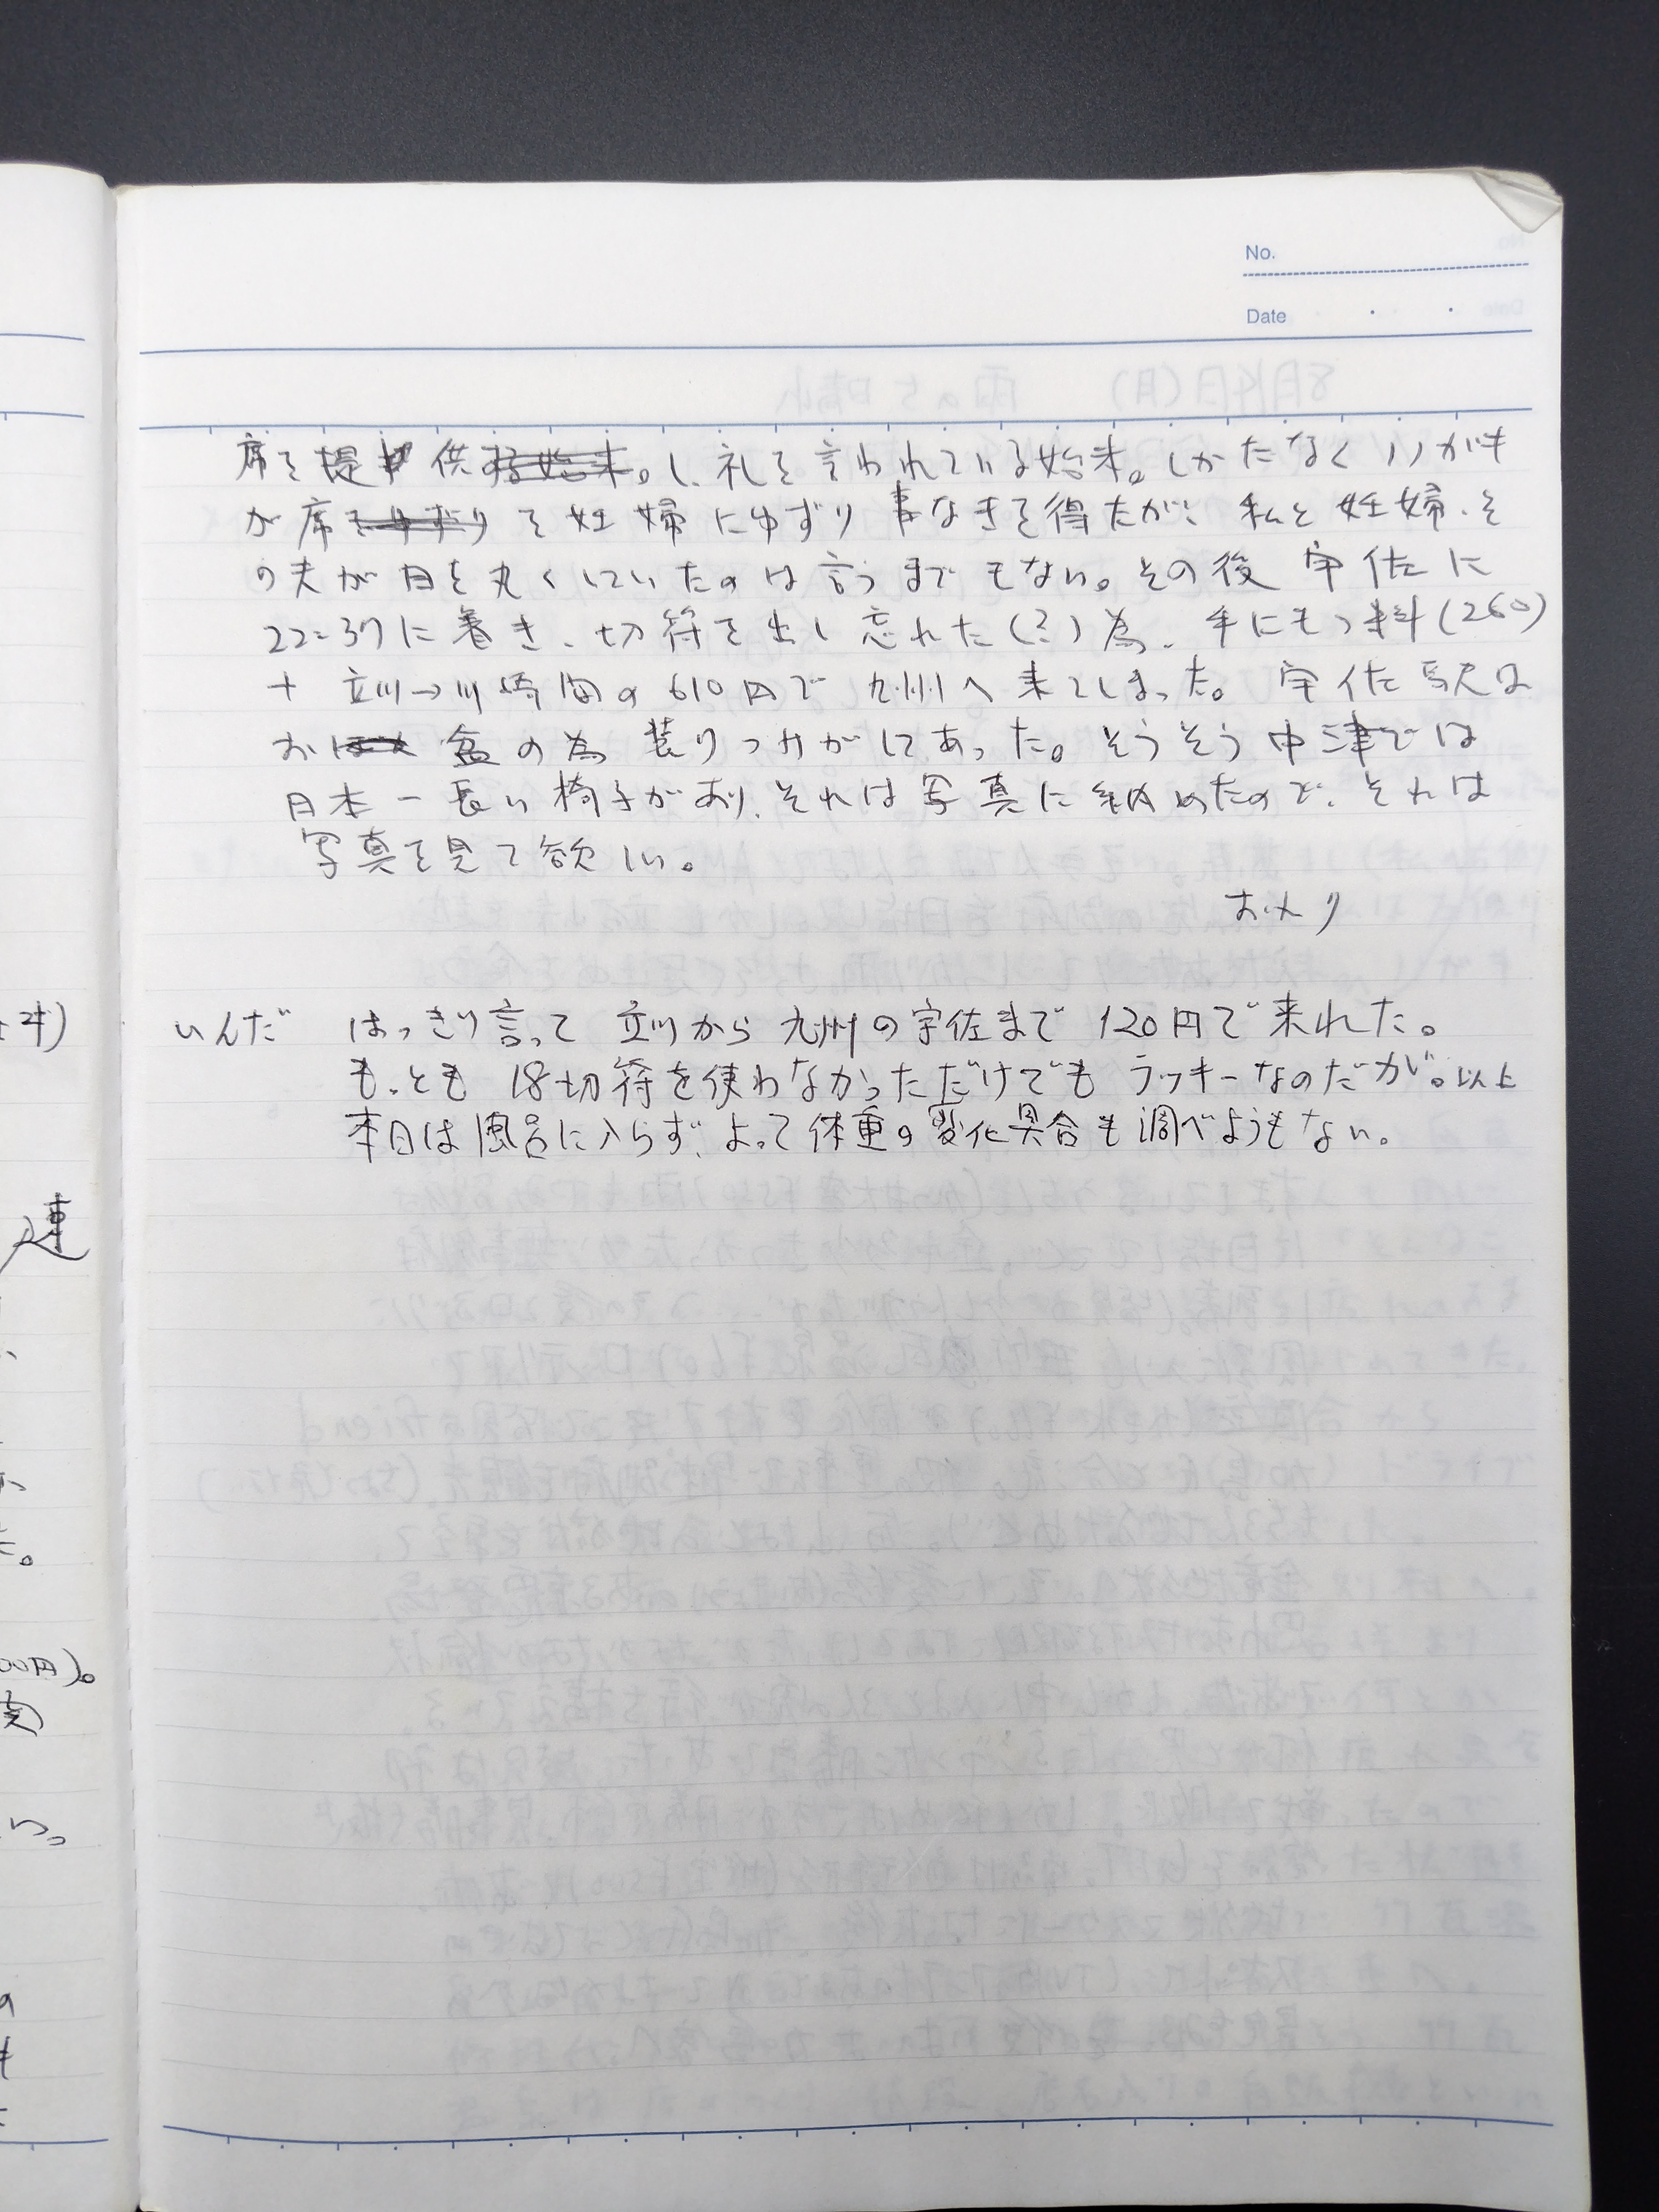 No.
Date
席を提供し、礼を言われている始末。しかたなくいがも
が席を妊婦にゆずり事なきを得たが、私と妊婦、そ
の夫が目を丸くしていたのは言うまでもない。その後 宇佐に
22:37に着き、切符を出し忘れた(?)為、手にもつ料(260)
+ 立川→川崎間の610円で九州へ来てしまった。宇佐駅は
お盆の為 装りつけがしてあった。そうそう中津では
日本一長い椅子があり、それは写真に納めたので、それは
写真を見て欲しい。
おわり
いんだ はっきり言って 立川から九州の宇佐まで120円で来れた。
もっとも 18切符を使わなかっただけでも ラッキーなのだが。以上
本日は風呂に入らず、よって体重の変化具合も調べようもない。